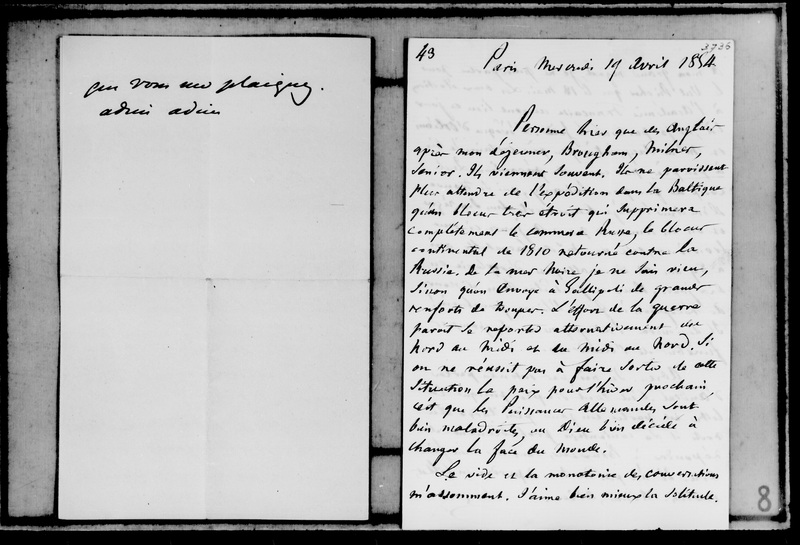 que vous me plaignez.
adieu adieu
43
3736
Paris Mercredi 19 Avril 1854
Personne hier que des Anglais
après mon déjeuner, Brougham, Milner,
Senior. Ils viennent souvent. Ils ne paroissent
plus attendre de l'expédition dans la Baltique
qu'un blocus très étroit qui supprimera
complètement le commerce Russe, le blocus
continental de 1810 retourné contre la
Russie. De la mer Noire je ne sais rien,
sinon qu'on envoye à Gallipoli de grands
renforts de troupes. L'effort de la guerre
paroit se reporter alternativement du
Nord au Midi et du Midi au Nord. Si
on ne réussit pas à faire sortir de cette
situation la paix pour l'hiver prochain,
c'est que les Puissances Allemandes sont
bien maladroites, ou Dieu bien décidé à
changer la face du monde.
Le vide et la monotonie des conversations
m'assomment. J'aime bien mieux la solitude.
8